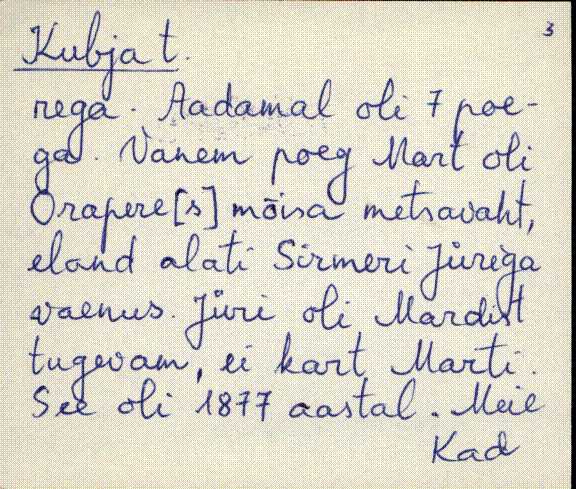 3
Kubja t.
rega. Aadamal oli 7 poe-
ga. Vanem poeg Mart oli
Orapere[s] mõisa metsavaht,
eland alati Sirmeri Jüriga
vaenus. Jüri oli Mardist
tugevam, ei kart Marti.
See oli 1877 aastal. Meie
Kad